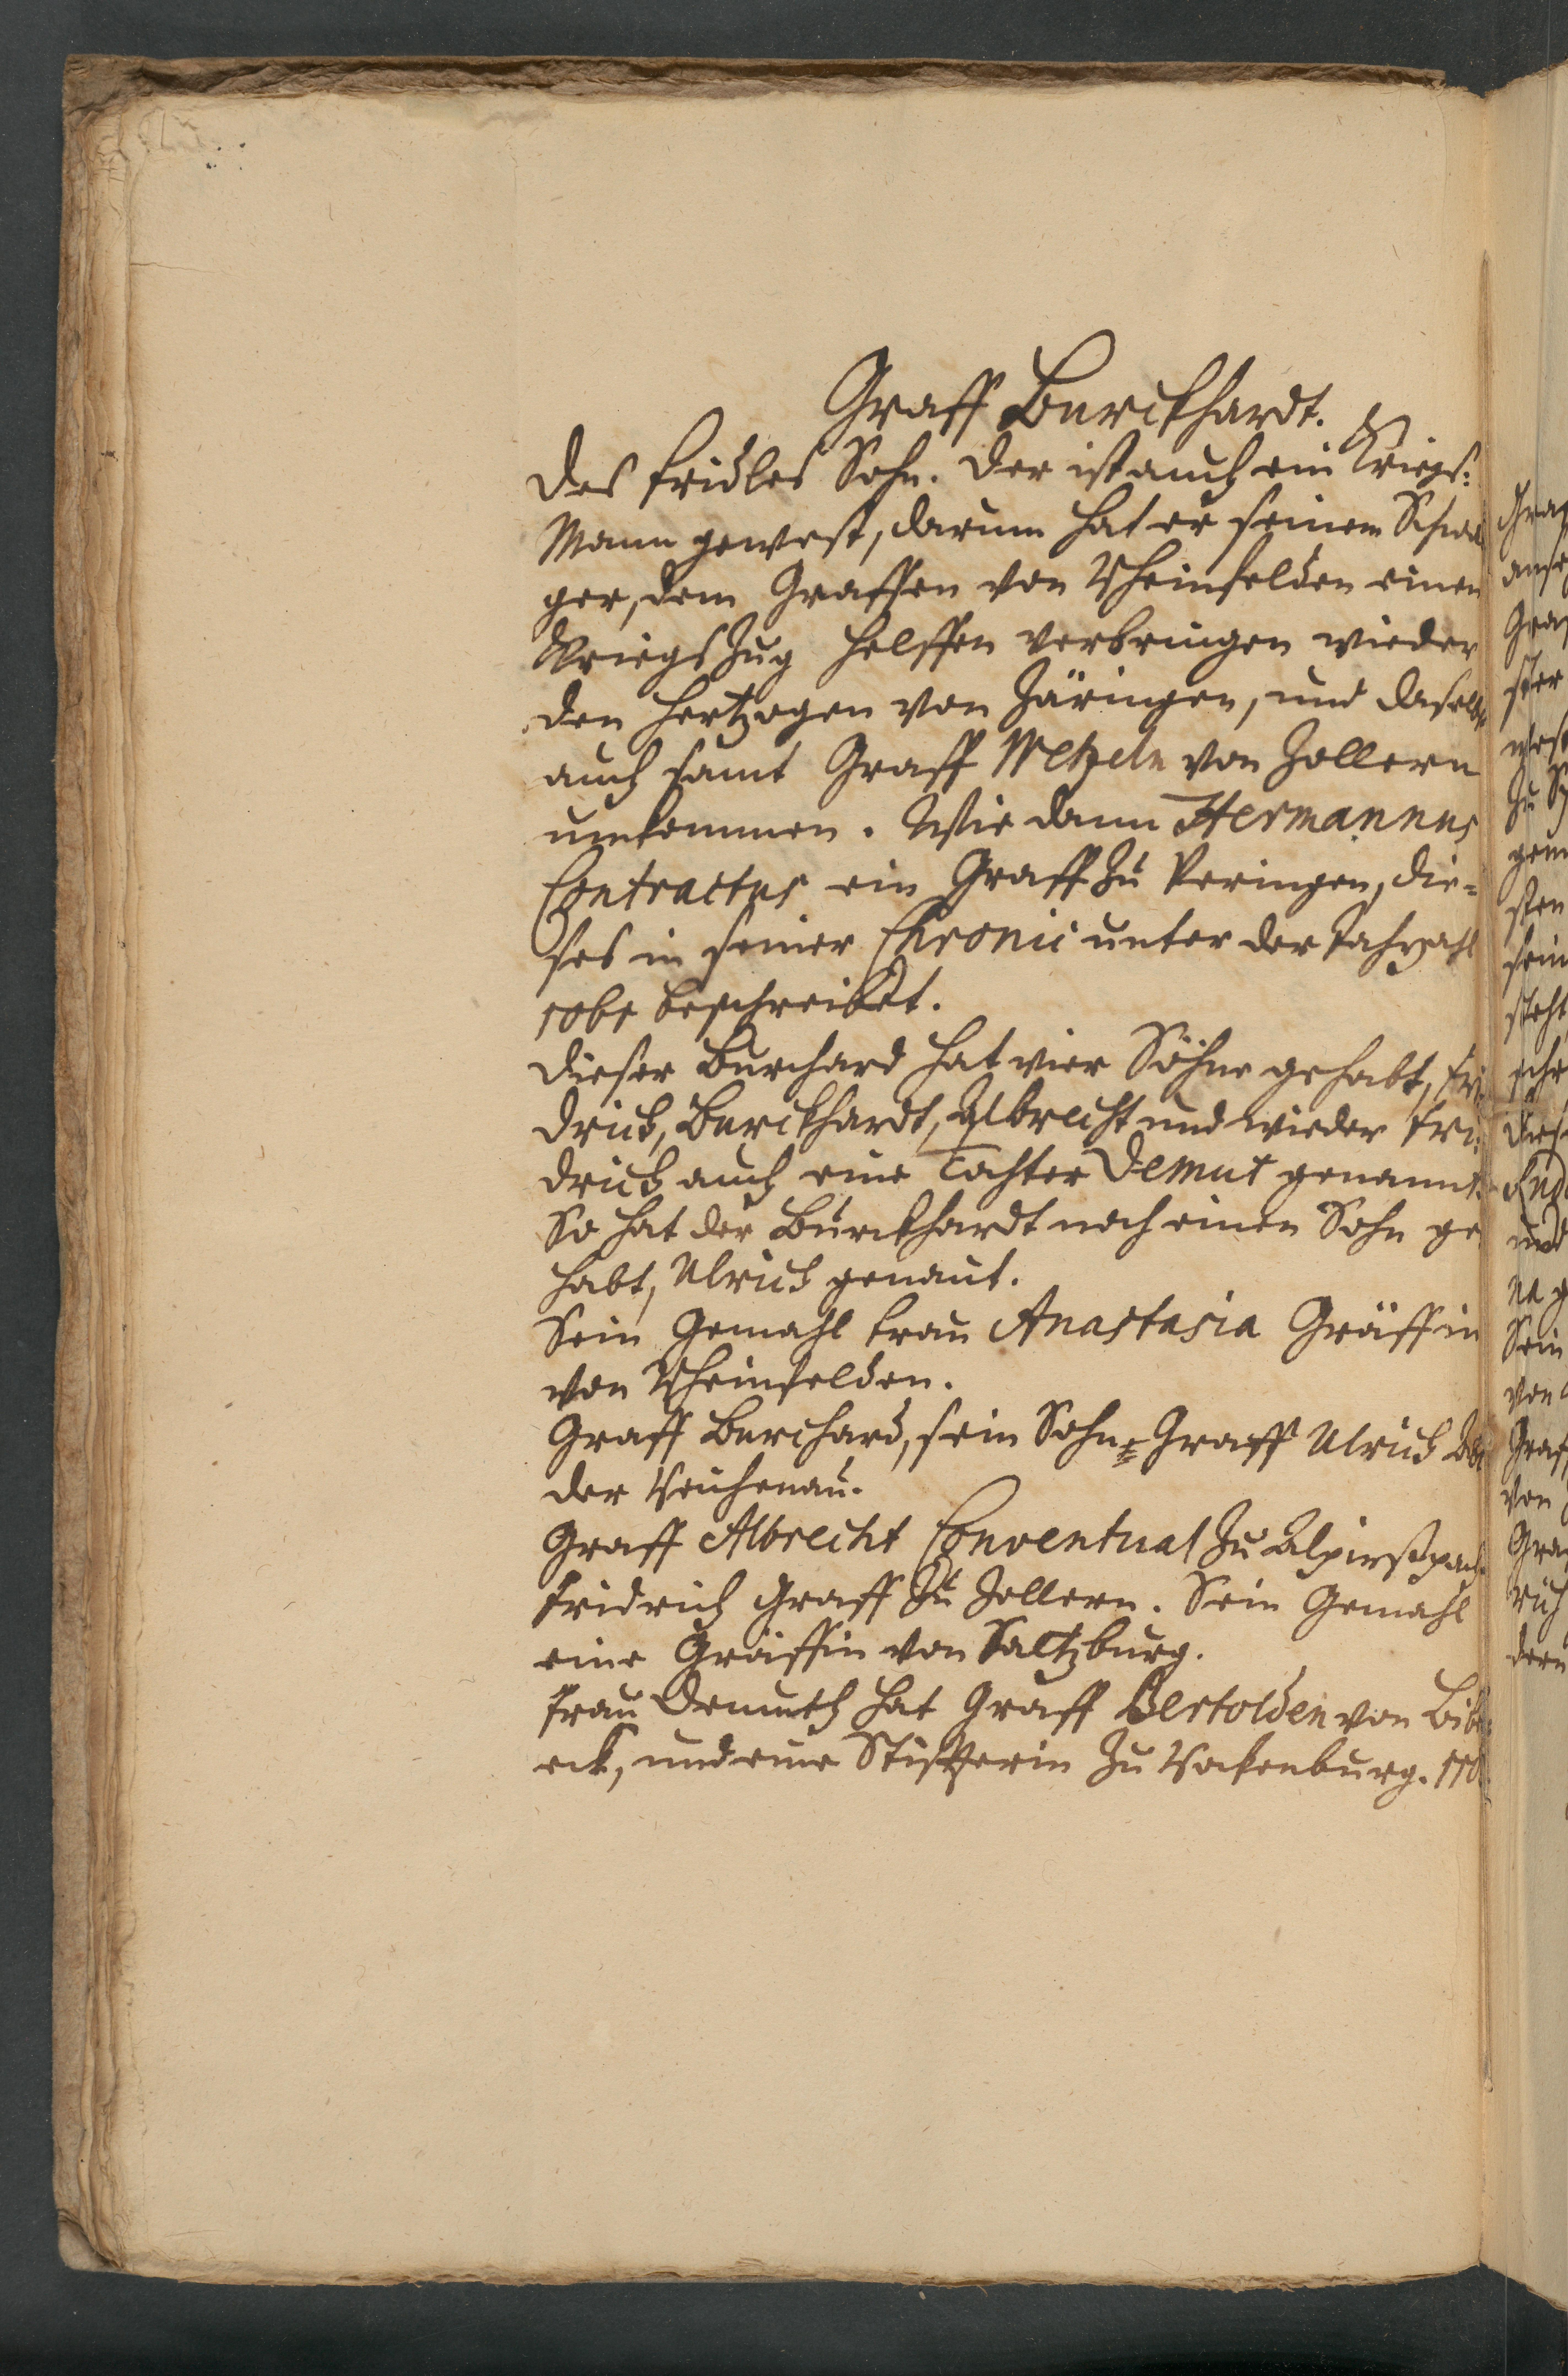 Graff Burckhardt.
des fridles Sohn. der ist auch ein Kriegs:
Mann gewest, darum hat er seinem Schwa
ger, dem Graffen von Rheinfelden einen
Kriegs Zug helffen verbringen wieder
den Hertzogen von Zäringen, und daselbst
auch samt Graff Wetzeln von Zollern
umkommen. Wie dann Hermannus
Contractus ein Graff zu Veringen, die=
ses in seiner Chronic unter der Jahrzahl
1061 beschreibet.
dieser Burchard hat vier Söhne gehabt, Fri
drich, Burckhardt, Albrecht und wieder Fri:
drich auch eine Tochter Demut genannt.
So hat der Burckhardt noch einen Sohn ge
habt, Ulrich genant.
Sein Gemahl frau Anastasia Gräffin
von Rheinfelden.
Graff Burchard, sein Sohn, Graff Ulrich Abt
der Reichenau.
Graff Albrecht Conventual zu Alpirspach
Fridrich Graff zu Zollern. Sein Gemahl
eine Gräffin von Saltzburg.
frau Demuth hat Graff Bertolden von
eck, und eine Stiffterin zu